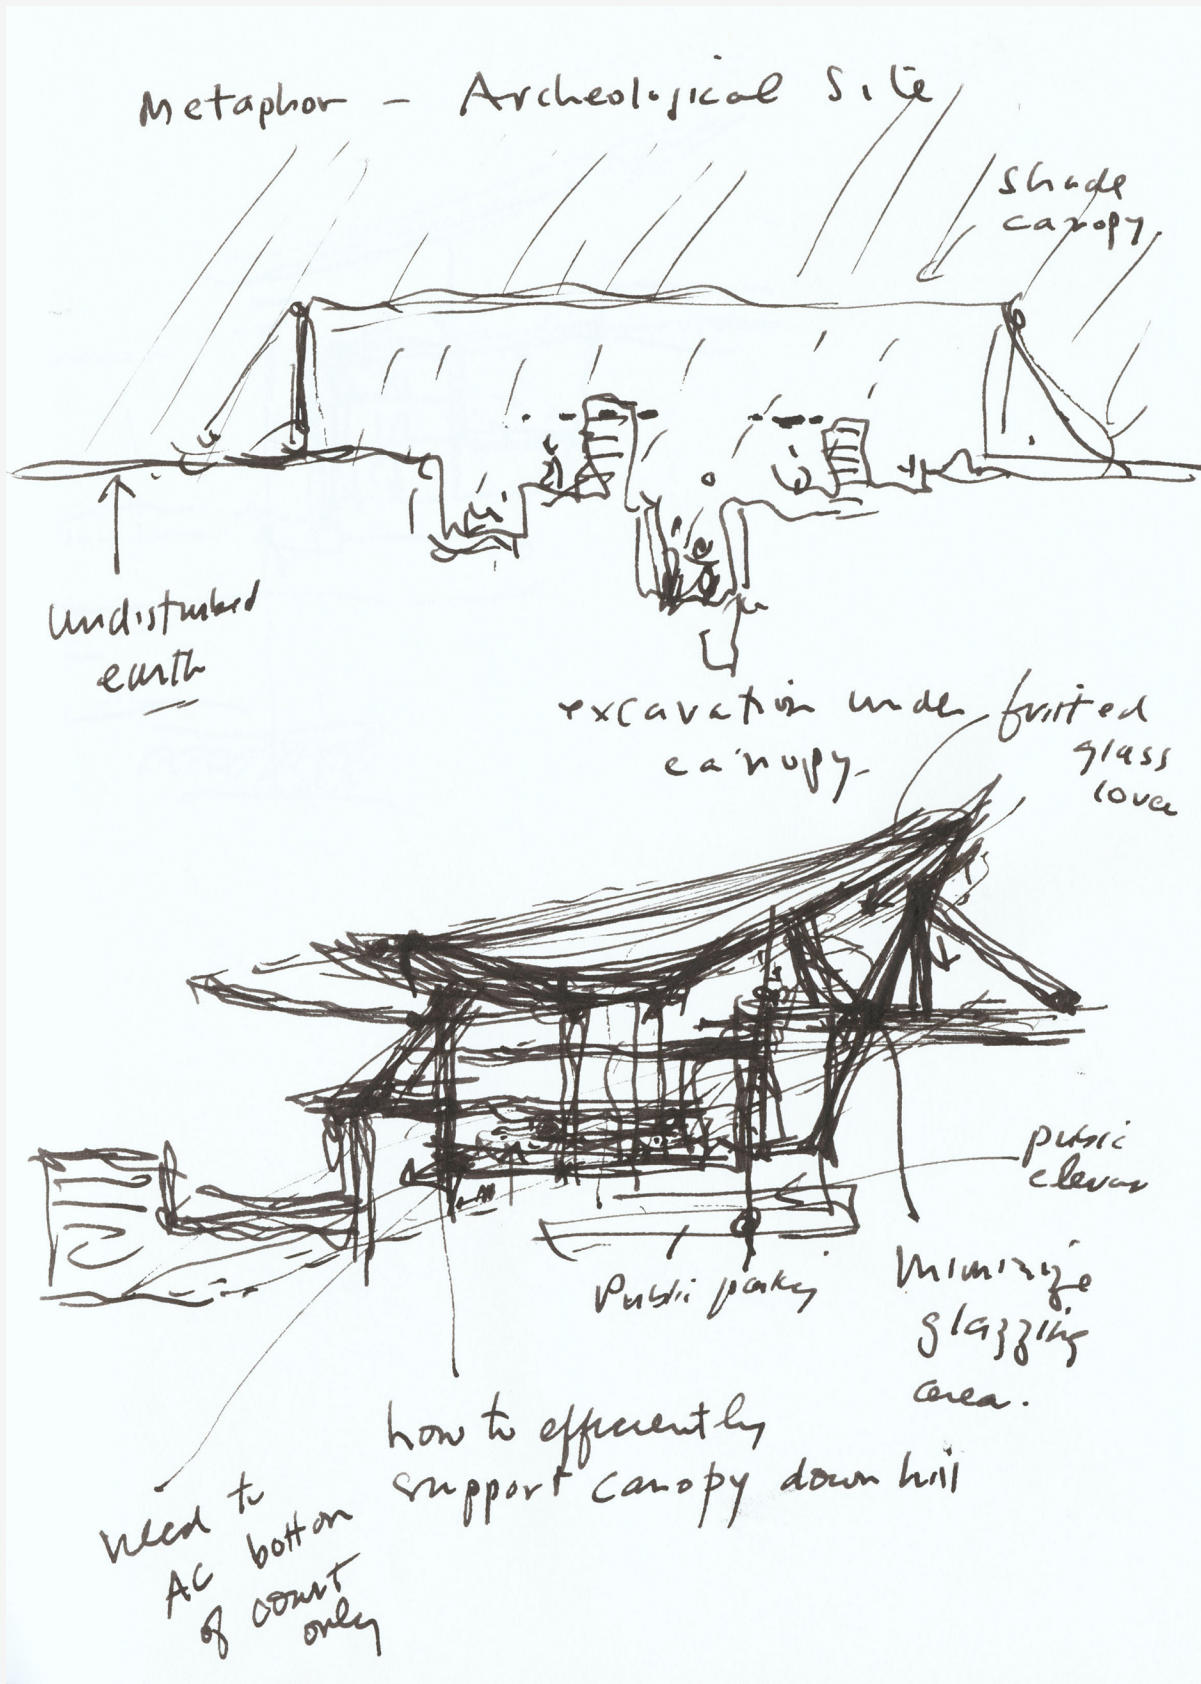 Metaphor - Archeological Site
shade
canopy
undisturbed
earth
excavation under
canopy.
fritted
glass
public
Public
minimize
glazzing
area.
how to efficiently
support canopy down hill
need to
AC bottom
of court
only